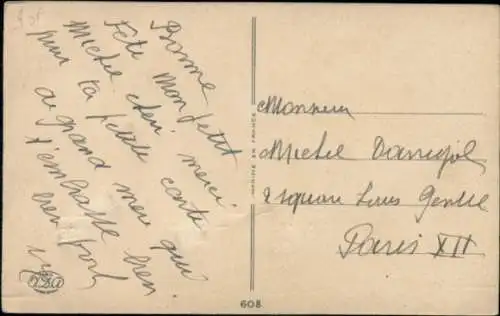 Bonne
Fête mon petit
Michel cheri merci
pour ta jolie carte
ta grand mere qui
t'embrasse bien
bien fort
Monsieur
Michel
2 square Louis Gentil
Paris XII
608